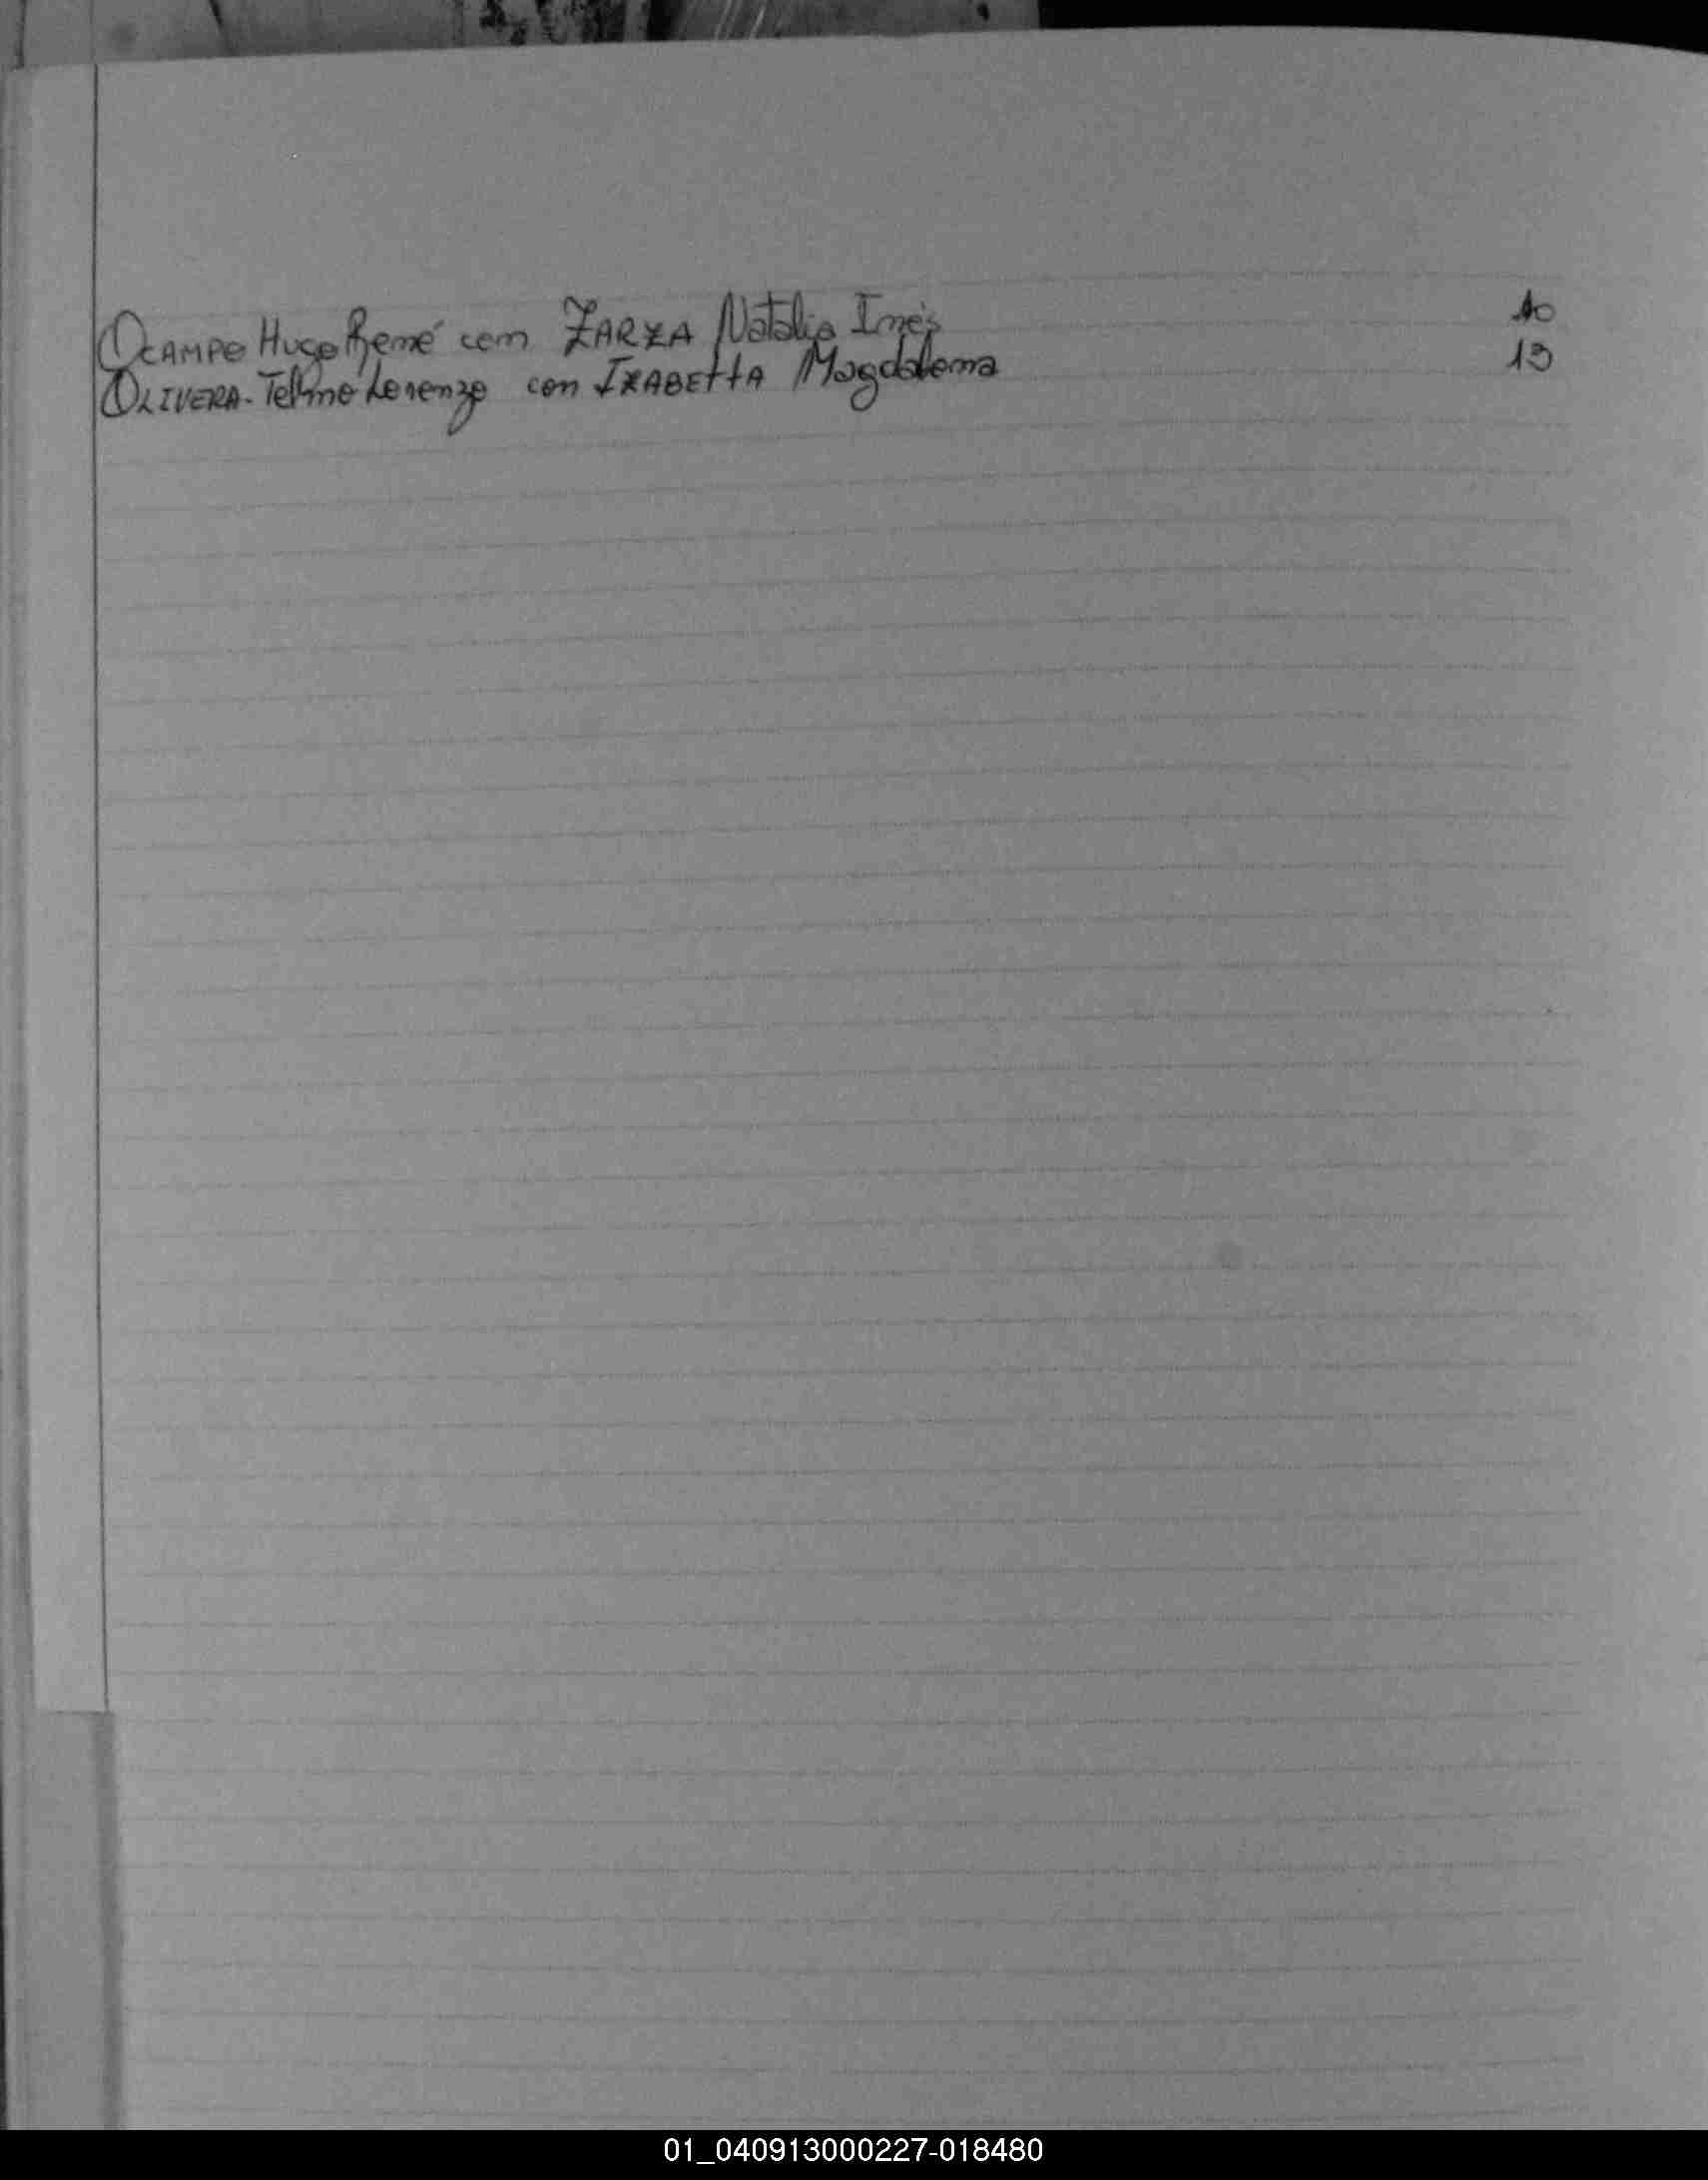 OCAMPO Hugo René con ZARZA Natalia Inés 10
OLIVERA - Telmo Lorenzo con IZABETTA Magdalena 13
01_040913000227-018480